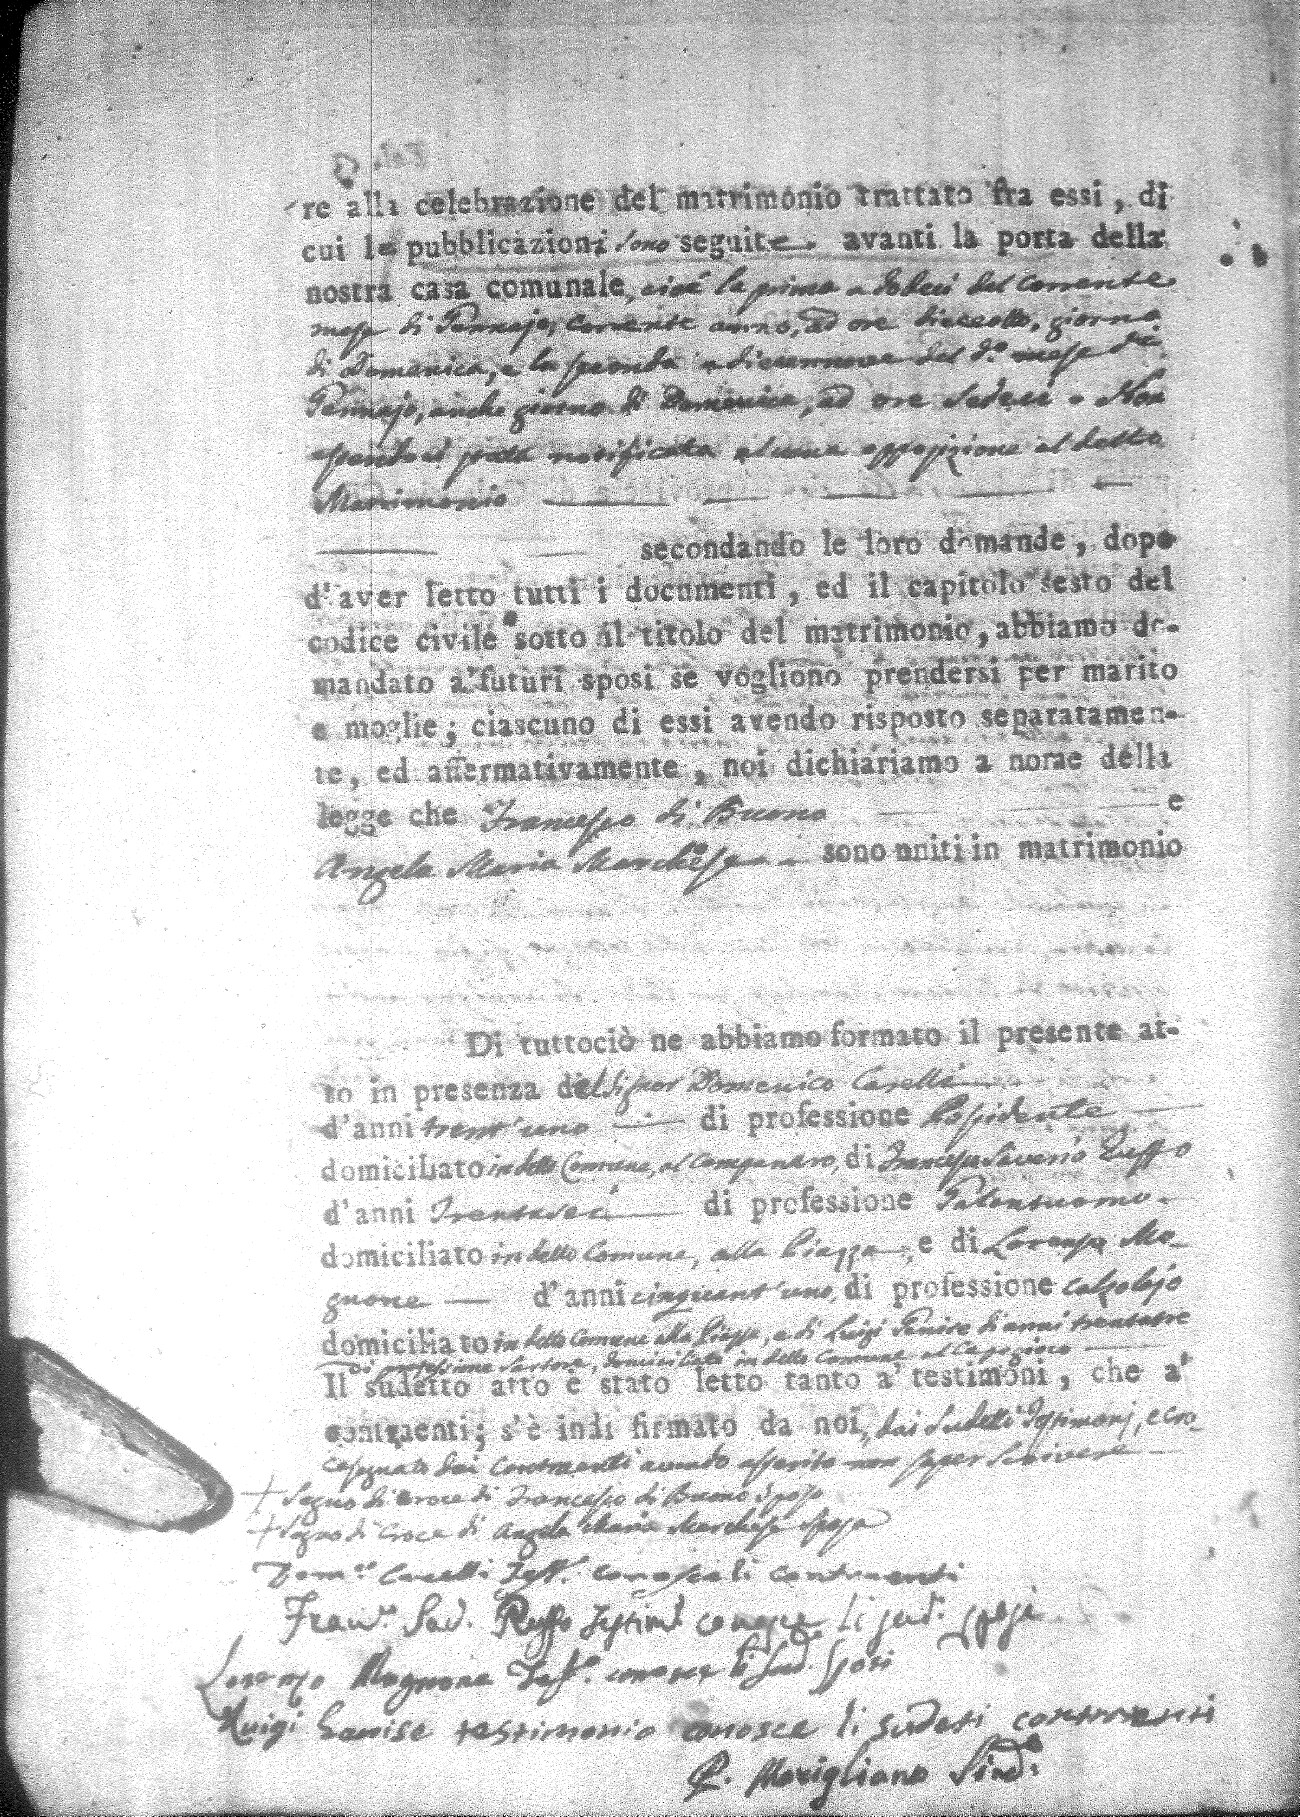 re alla celebrazione del matrimonio trattato fra essi, di
cui le pubblicazioni sono seguite avanti la porta della
nostra casa comunale, cioè la prima a dodeci del corrente
mese di Gennajo, corrente anno, ad ore dieceotto, giorno
di Domenica, e la seconda a diecennove del d.º mese di
Gennajo, anche giorno di Domenica, ad ore sedeci. Non
essendoci stata notificata alcuna opposizione al detto
Matrimonio
secondando le loro domande, dopo
d'aver letto tutti i documenti, ed il capitolo sesto del
codice civile sotto il titolo del matrimonio, abbiamo do-
mandato a' futuri sposi se vogliono prendersi per marito
e moglie; ciascuno di essi avendo risposto separatamen-
te, ed affermativamente, noi dichiariamo a nome della
legge che Francesco di Buono e
Angela Maria Marchese sono uniti in matrimonio
Di tuttociò ne abbiamo formato il presente at-
to in presenza del Signor Domenico Caselli
d'anni trent'uno di professione Possidente
domiciliato in detto Comune, al Campanaro, di Francesco Saverio Ruffo
d'anni Trentasei di professione Galantuomo
domiciliato in detto Comune, alla Piazza, e di Lorenzo Ma-
gnone d'anni cinquant'uno, di professione calzolajo
domiciliato in detto Comune alla Piazza, e di Luigi Genise di anni trentatre
di professione Sartore, domiciliato in detto Comune al
Il sudetto atto è stato letto tanto a' testimoni, che a'
contraenti; s'è indi firmato da noi, dai sudetti Testimonj, e cro-
cesegnato dai contraenti avendo asserito non saper scrivere
+ Segno di croce di Francesco di Buono sposo
+ Segno di Croce di Angela Maria Marchese sposa
Dom.co Caselli Test.º conosco li contraenti
Fran.º Sav. Ruffo Testim.º conosce li sud.i sposi
Lorenzo Magnone Test.º conosce li sud. sposi
Luigi Genise testimonio conosce li sudeti contraenti
P. Marigliano Sind.º